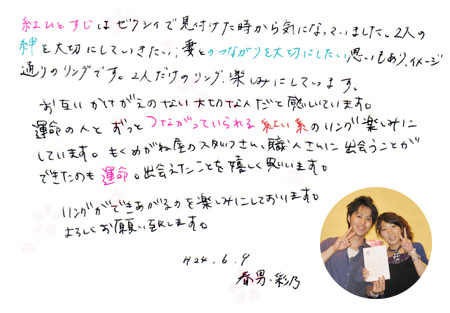 紅ひとすじはゼクシィで見付けた時から気になっていました。2人の
絆を大切にしていきたい、妻とのつながりを大切にしたい思いもあり、イメージ
通りのリングです。2人だけのリング、楽しみにしています。
お互いかけがえのない大切な人だと感じています。
運命の人とずっとつながっていられる紅い糸のリング楽しみに
しています。もくめがね屋のスタッフさん、職人さんに出会うことが
できたのも運命。出会えたことを嬉しく思います。
リングができあがるのを楽しみにしております。
よろしくお願い致します。
H24.6.9
春男・彩乃